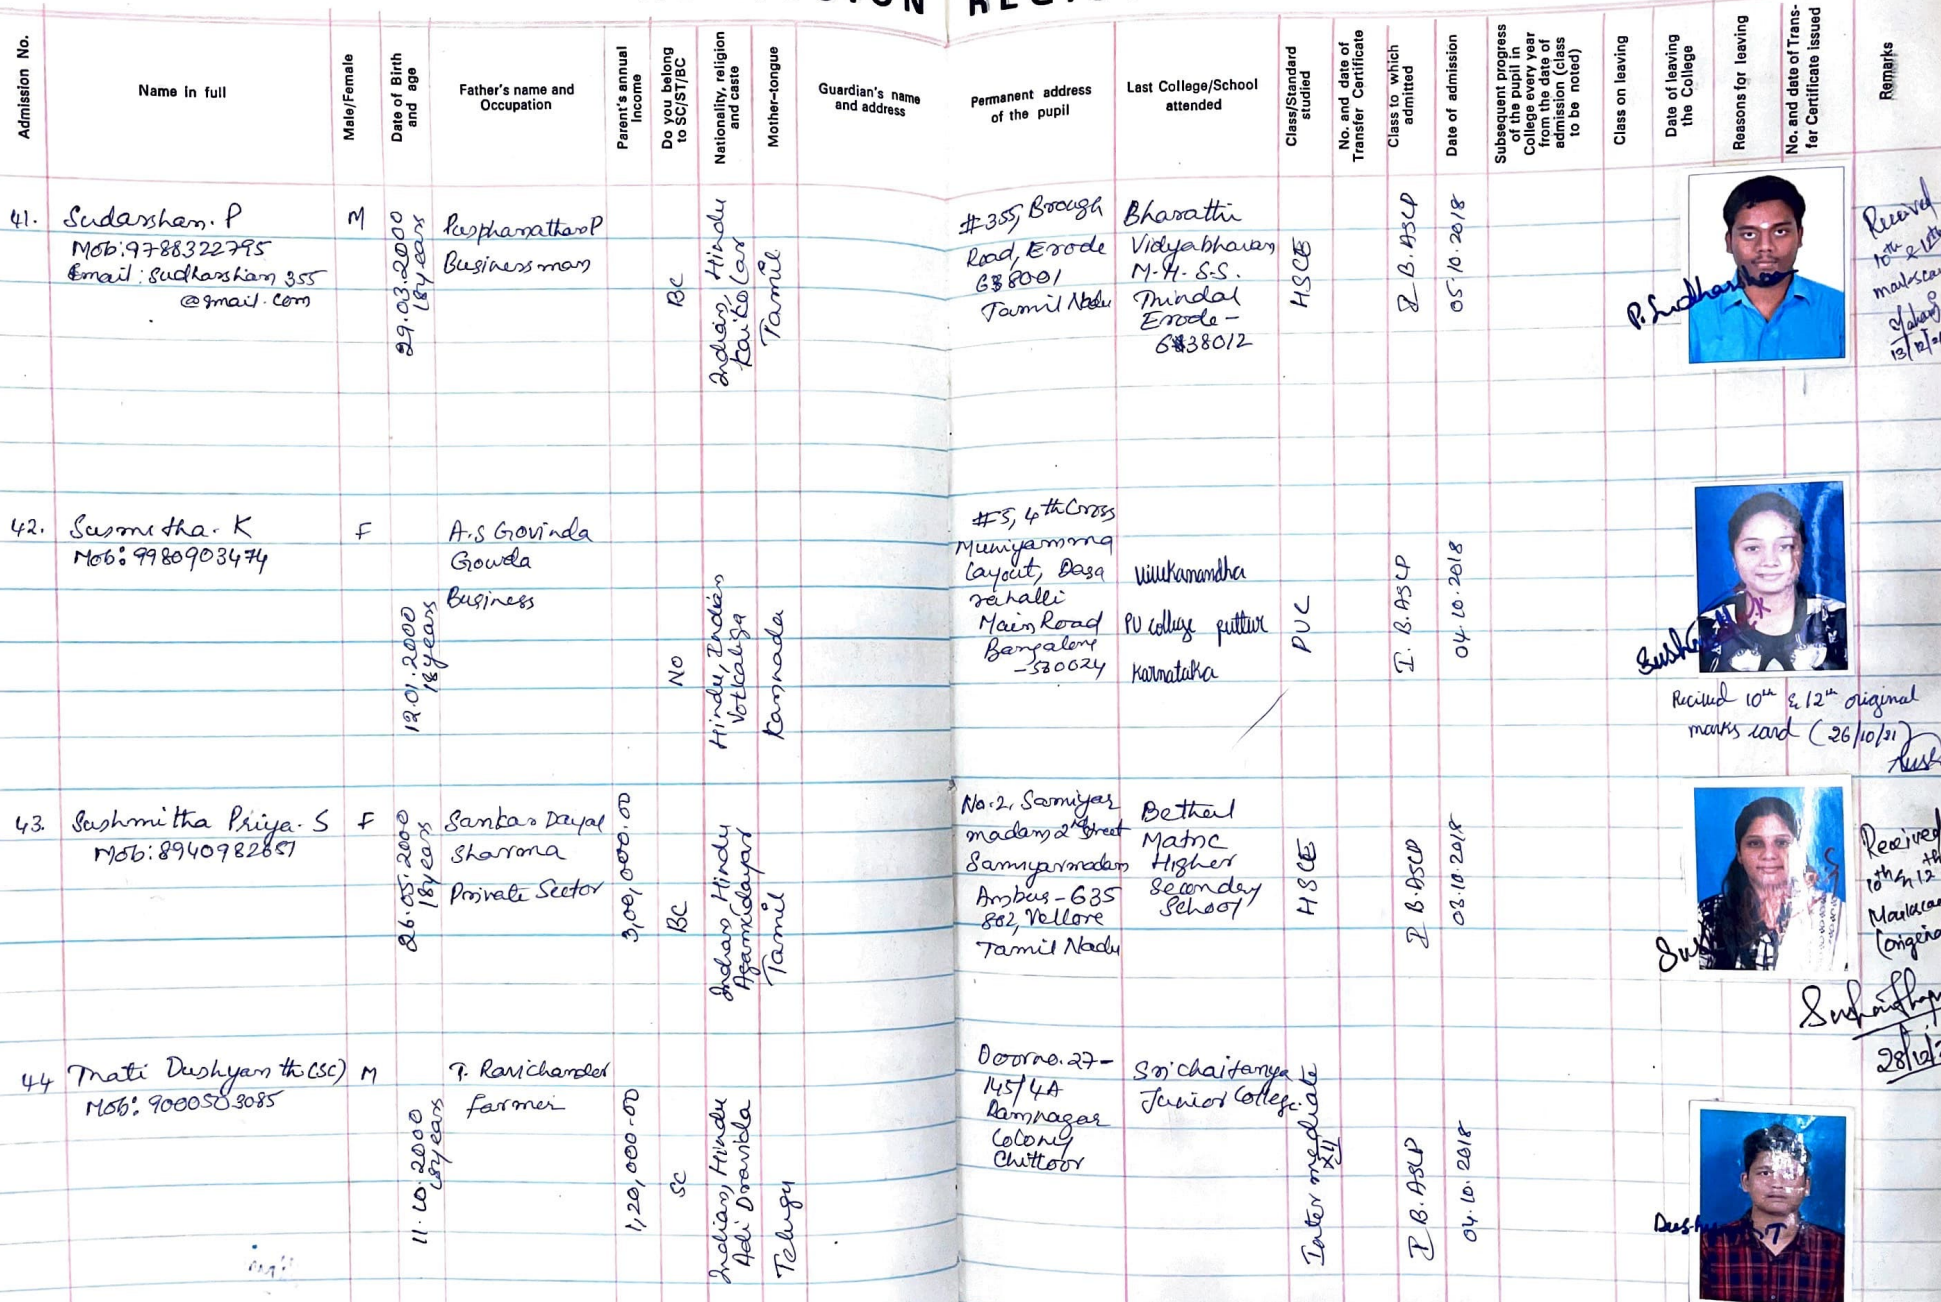 Admission No.
Name in full
Male/Female
Date of Birth
and age
Father's name and
Occupation
Parent's annual
Income
Do you belong
to SC/ST/BC
Nationality, religion
and caste
Mother-tongue
Guardian's name
and address
Permanent address
of the pupil
Last College/School
attended
Class/Standard
studied
No. and date of
Transfer Certificate
Class to which
admitted
Date of admission
Subsequent progress
of the pupil in
College every year
from the date of
admission (class
to be noted)
Class on leaving
Date of leaving
the College
Reasons for leaving
No. and date of Trans-
fer Certificate issued
Remarks
41.
Sudarshan. P
Mob:9788322795
Email: Sudharshan 355
@gmail.com
M
29.03.2000
18years
Businessman
BC
Indian, Hindu
Tamil
#355, Brough
Road, Erode
638001
Tamil Nadu
Bharathi
Vidyabhavan
M.H.S.S.
Thindal
Erode-
638012
HSCE
I B.ASLP
05.10.2018
P. Sudharshan
Received
10th & 12th
42.
Susmitha. K
Mob: 9980903474
F
12.01.2000
18years
A.S Govinda
Gowda
Business
NO
Hindu, Indian
Votkaliga
Kannada
#5, 4th Cross
Muniyamma
Layout, Dasa
rahalli
Main Road
Bangalore
-560024
Vivekanandha
PU college puttur
Karnataka
PUC
I. B.ASLP
04.10.2018
Recived 10th & 12th original
marks card (26/10/21)
43.
Sushmitha Priya. S
F
26.05.2000
18years
Sankar Dayal
Sharma
Private Sector
3,00,000.00
BC
Indian, Hindu
Agamudayar
Tamil
No.2, Samiyar
madam 2nd street
Samiyarmadam
Ambur-635
802, Vellore
Tamil Nadu
Bethel
Matric
Higher
Seconday
School
HSCE
I B.ASLP
03.10.2018
Received
10th & 12th
44
Thati Dushyanth (SC)
Mob: 9000503085
M
11.10.2000
18years
T. Ravichander
farmer
1,20,000.00
SC
Indian, Hindu
Adi Dravida
Telugu
Doorno.27-
145/4A
Ramnagar
Colony
Chittoor
Sri chaitanya
Junior College.
Intermediate
XII
I B.ASLP
04.10.2018